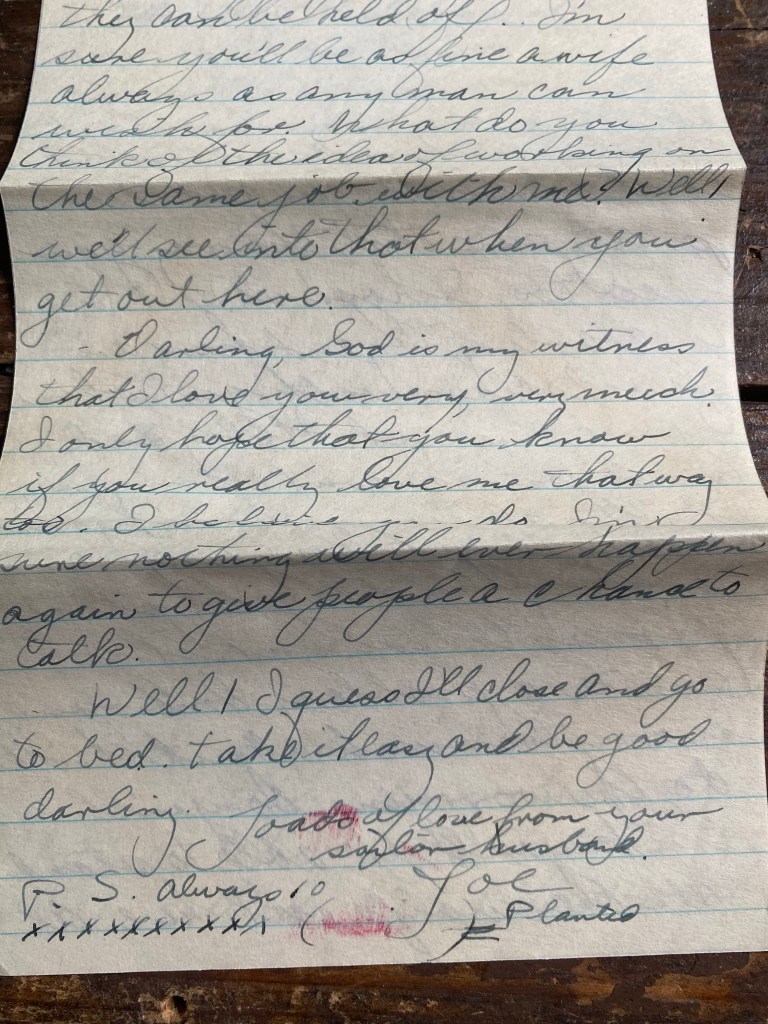 they can be held off.. I'm
sure you'll be as fine a wife
always as any man can
wish for. What do you
think of the idea of working on
the same job with me? Well,
we'll see into that when you
get out here.
- Darling, God is my witness
that I love you very, very much.
I only hope that you know
if you really love me that way
too. I believe you do. I'm
sure nothing will ever happen
again to give people a chance to
talk.
Well, I guess I'll close and go
to bed. take it easy and be good
darling. Loads of love from your
sailor husband.
P. S. always Joe
xxxxxxxxxx Planted